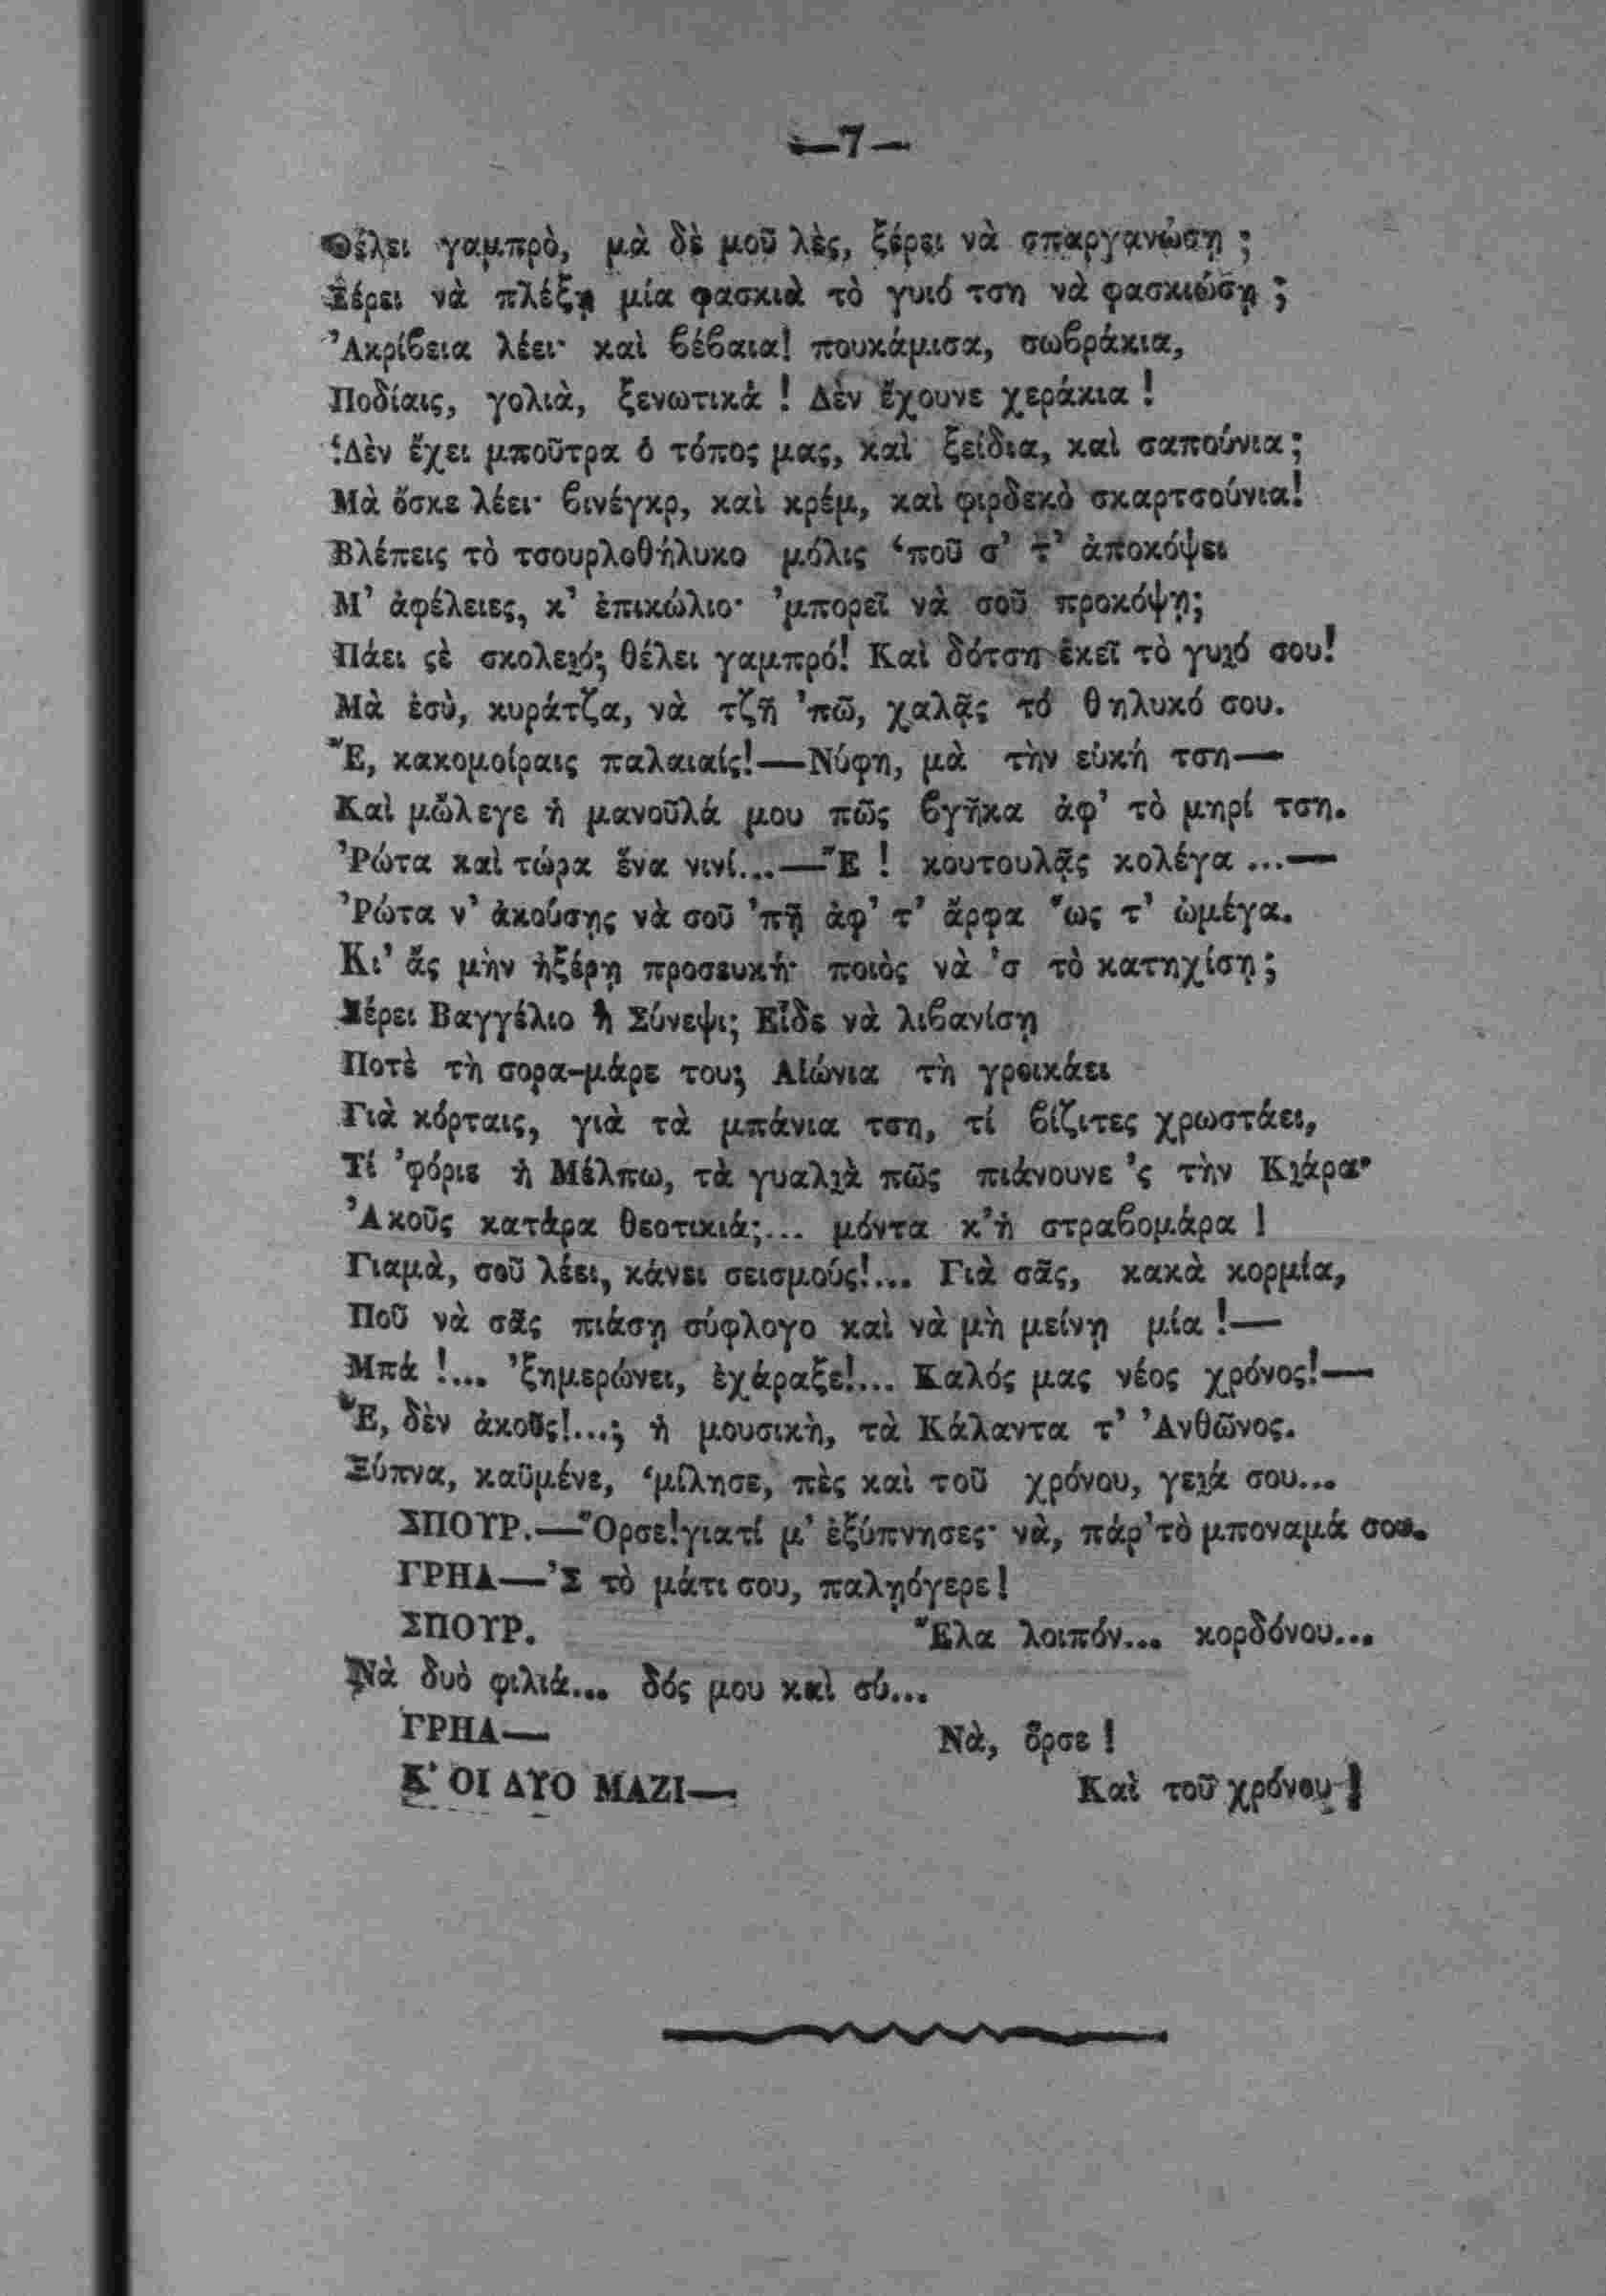 —7—
Θέλει γαμπρὸ, μὰ δὲ μοῦ λὲς, ξέρει νὰ σπαργανώσῃ ;
Ξέρει νὰ πλέξῃ μία φασκιὰ τὸ γυιό τση νὰ φασκιώσῃ ;
Ἀκρίβεια λέει· καὶ βέβαια! πουκάμισα, σωβράκια,
Ποδίαις, γολιὰ, ξενωτικά ! Δὲν ἔχουνε χεράκια !
Δὲν ἔχει μποῦτρα ὁ τόπος μας, καὶ ξείδια, καὶ σαπούνια ;
Μὰ ὄσκε λέει· βινέγκρ, καὶ κρέμ, καὶ φιρδεκὸ σκαρτσούνια!
Βλέπεις τὸ τσουρλοθήλυκο μόλις ‘ποῦ σ’ τ’ ἀποκόψει
Μ’ ἀφέλειες, κ’ ἐπικώλιο· ’μπορεῖ νὰ σοῦ προκόψῃ;
Πάει ςὲ σκολειό; θέλει γαμπρό! Καὶ δότση ἐκεῖ τὸ γυιό σου!
Μὰ ἐσὺ, κυράτζα, νὰ τζῆ ’πῶ, χαλᾷς τό θηλυκό σου.
Ἔ, κακομοίραις παλαιαίς!—Νύφη, μὰ τὴν εὐκή τση—
Καὶ μὤλεγε ἡ μανοῦλά μου πῶς βγῆκα ἀφ’ τὸ μηρί τση.
Ῥώτα καὶ τώρα ἕνα νινί...—Ἔ ! κουτουλᾷς κολέγα ...—
Ῥώτα ν’ ἀκούσῃς νὰ σοῦ ’πῇ ἀφ’ τ’ ἄρφα ἕως τ’ ὠμέγα.
Κι’ ἄς μὴν ἠξέρῃ προσευκή· ποιὸς νὰ ’σ τὸ κατηχίσῃ ;
Ξέρει Βαγγέλιο ἢ Σύνεψι; Εἶδε νὰ λιβανίσῃ
Ποτὲ τὴ σορα-μάρε του; Αἰώνια τὴ γροικάει
Γιὰ κόρταις, γιὰ τὰ μπάνια τση, τί βίζιτες χρωστάει,
Τί ’φόριε ἡ Μέλπω, τὰ γυαλιὰ πῶς πιάνουνε ’ς τὴν Κιάρα·
Ἀκοῦς κατάρα θεοτικιά;... μόντα κ’ ἡ στραβομάρα !
Γιαμὰ, σοῦ λέει, κάνει σεισμούς!... Γιὰ σᾶς, κακὰ κορμία,
Ποῦ νὰ σᾶς πιάσῃ σύφλογο καὶ νὰ μὴ μείνῃ μία !—
Μπά !... ’ξημερώνει, ἐχάραξε!... Καλός μας νέος χρόνος!—
Ἔ, δὲν ἀκοῦς!...; ἡ μουσικὴ, τὰ Κάλαντα τ’ Ἀνθῶνος.
Ξύπνα, καϋμένε, ‘μίλησε, πὲς καὶ τοῦ χρόνου, γειά σου...
ΣΠΟΥΡ.—Ὄρσε!γιατί μ’ ἐξύπνησες· νὰ, πάρ’ τὸ μποναμά σου.
ΓΡΗΑ—’Σ τὸ μάτι σου, παληόγερε!
ΣΠΟΥΡ. Ἔλα λοιπόν... κορδόνου...
Νὰ δυὸ φιλιά... δός μου καὶ σύ...
ΓΡΗΑ— Νὰ, ὄρσε !
Κ’ ΟΙ ΔΥΟ ΜΑΖΙ— Καὶ τοῦ χρόνου !